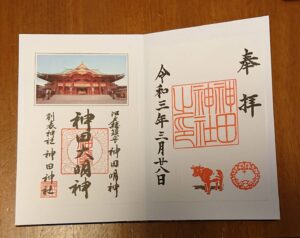 奉拝
神田
神社
之印
令和三年三月廿八日
江戸総鎮守 神田明神
神田大明神
別表神社 神田神社